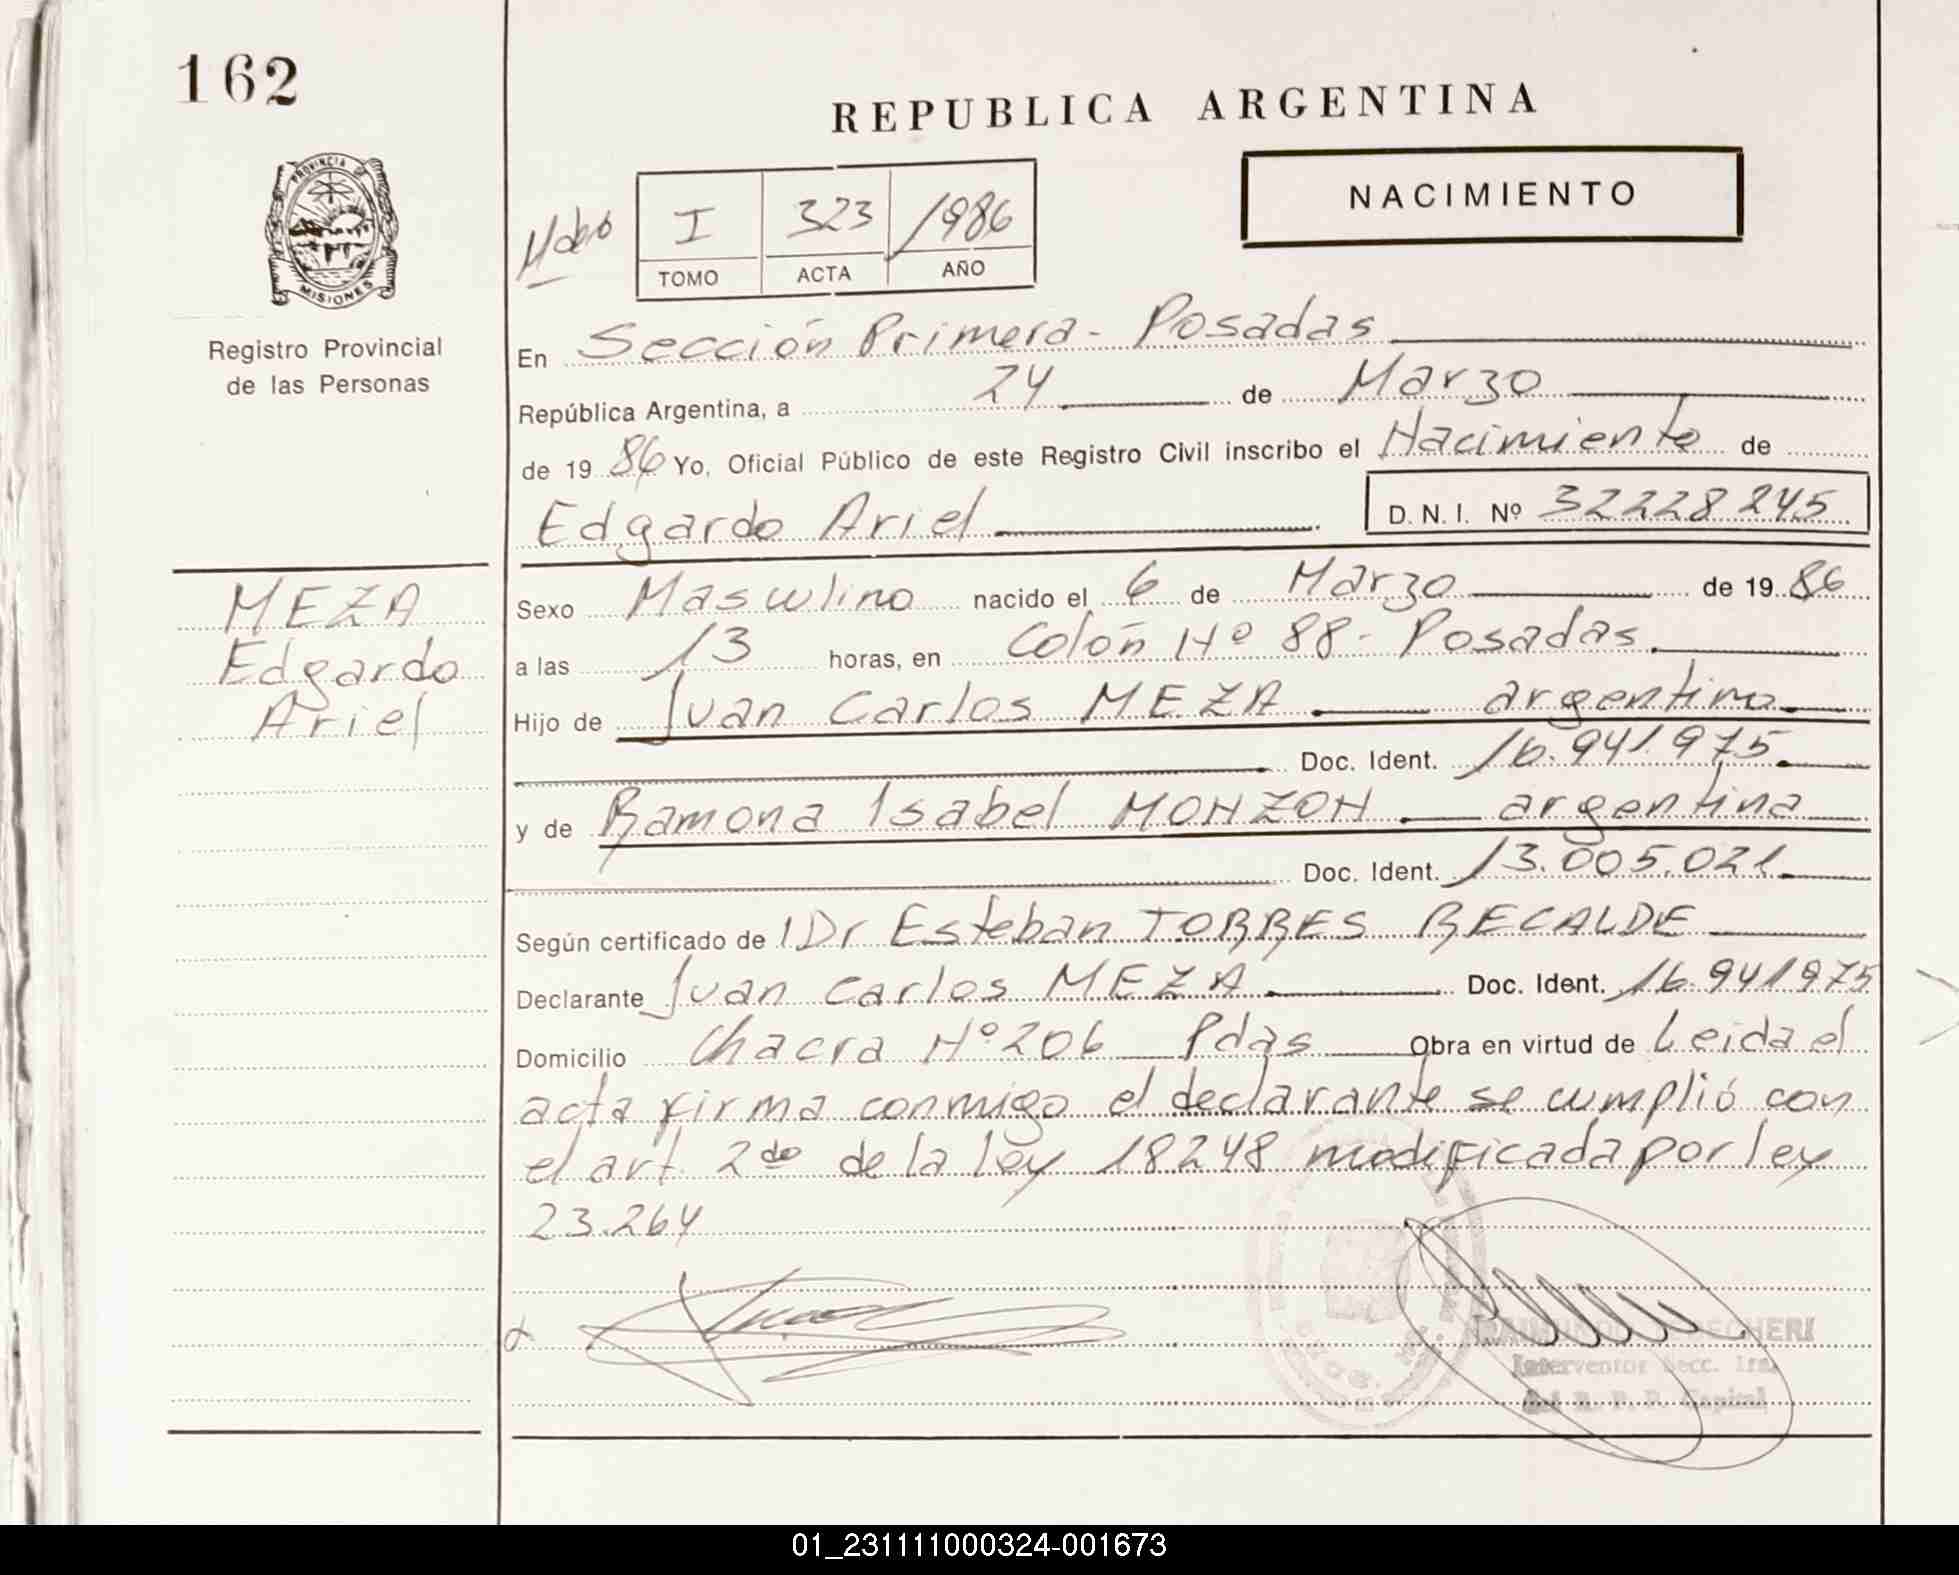 162
REPUBLICA ARGENTINA
NACIMIENTO
I 323 1986
TOMO ACTA AÑO
PROVINCIA DE
MISIONES
Registro Provincial
de las Personas
En Sección Primera - Posadas
República Argentina, a 24 de Marzo
de 19 86 Yo, Oficial Público de este Registro Civil inscribo el Nacimiento de
Edgardo Ariel D.N.I. Nº 32228245
MEZA
Edgardo
Ariel
Sexo Masculino nacido el 6 de Marzo de 19 86
a las 13 horas, en Colón Nº 88 - Posadas
Hijo de Juan Carlos MEZA argentino
Doc. Ident. 16.941.975
y de Ramona Isabel MONZON argentina
Doc. Ident. 13.005.021
Según certificado de Dr Esteban TORRES RECALDE
Declarante Juan Carlos MEZA Doc. Ident. 16.941975
Domicilio Chacra Nº 206 Pdas Obra en virtud de Leida el
acta firma conmigo el declarante se cumplió con
el art. 2do de la ley 18248 modificada por ley
23.264
Interventor Secc. 1ra.
del R. P. P. Capital
01_231111000324-001673